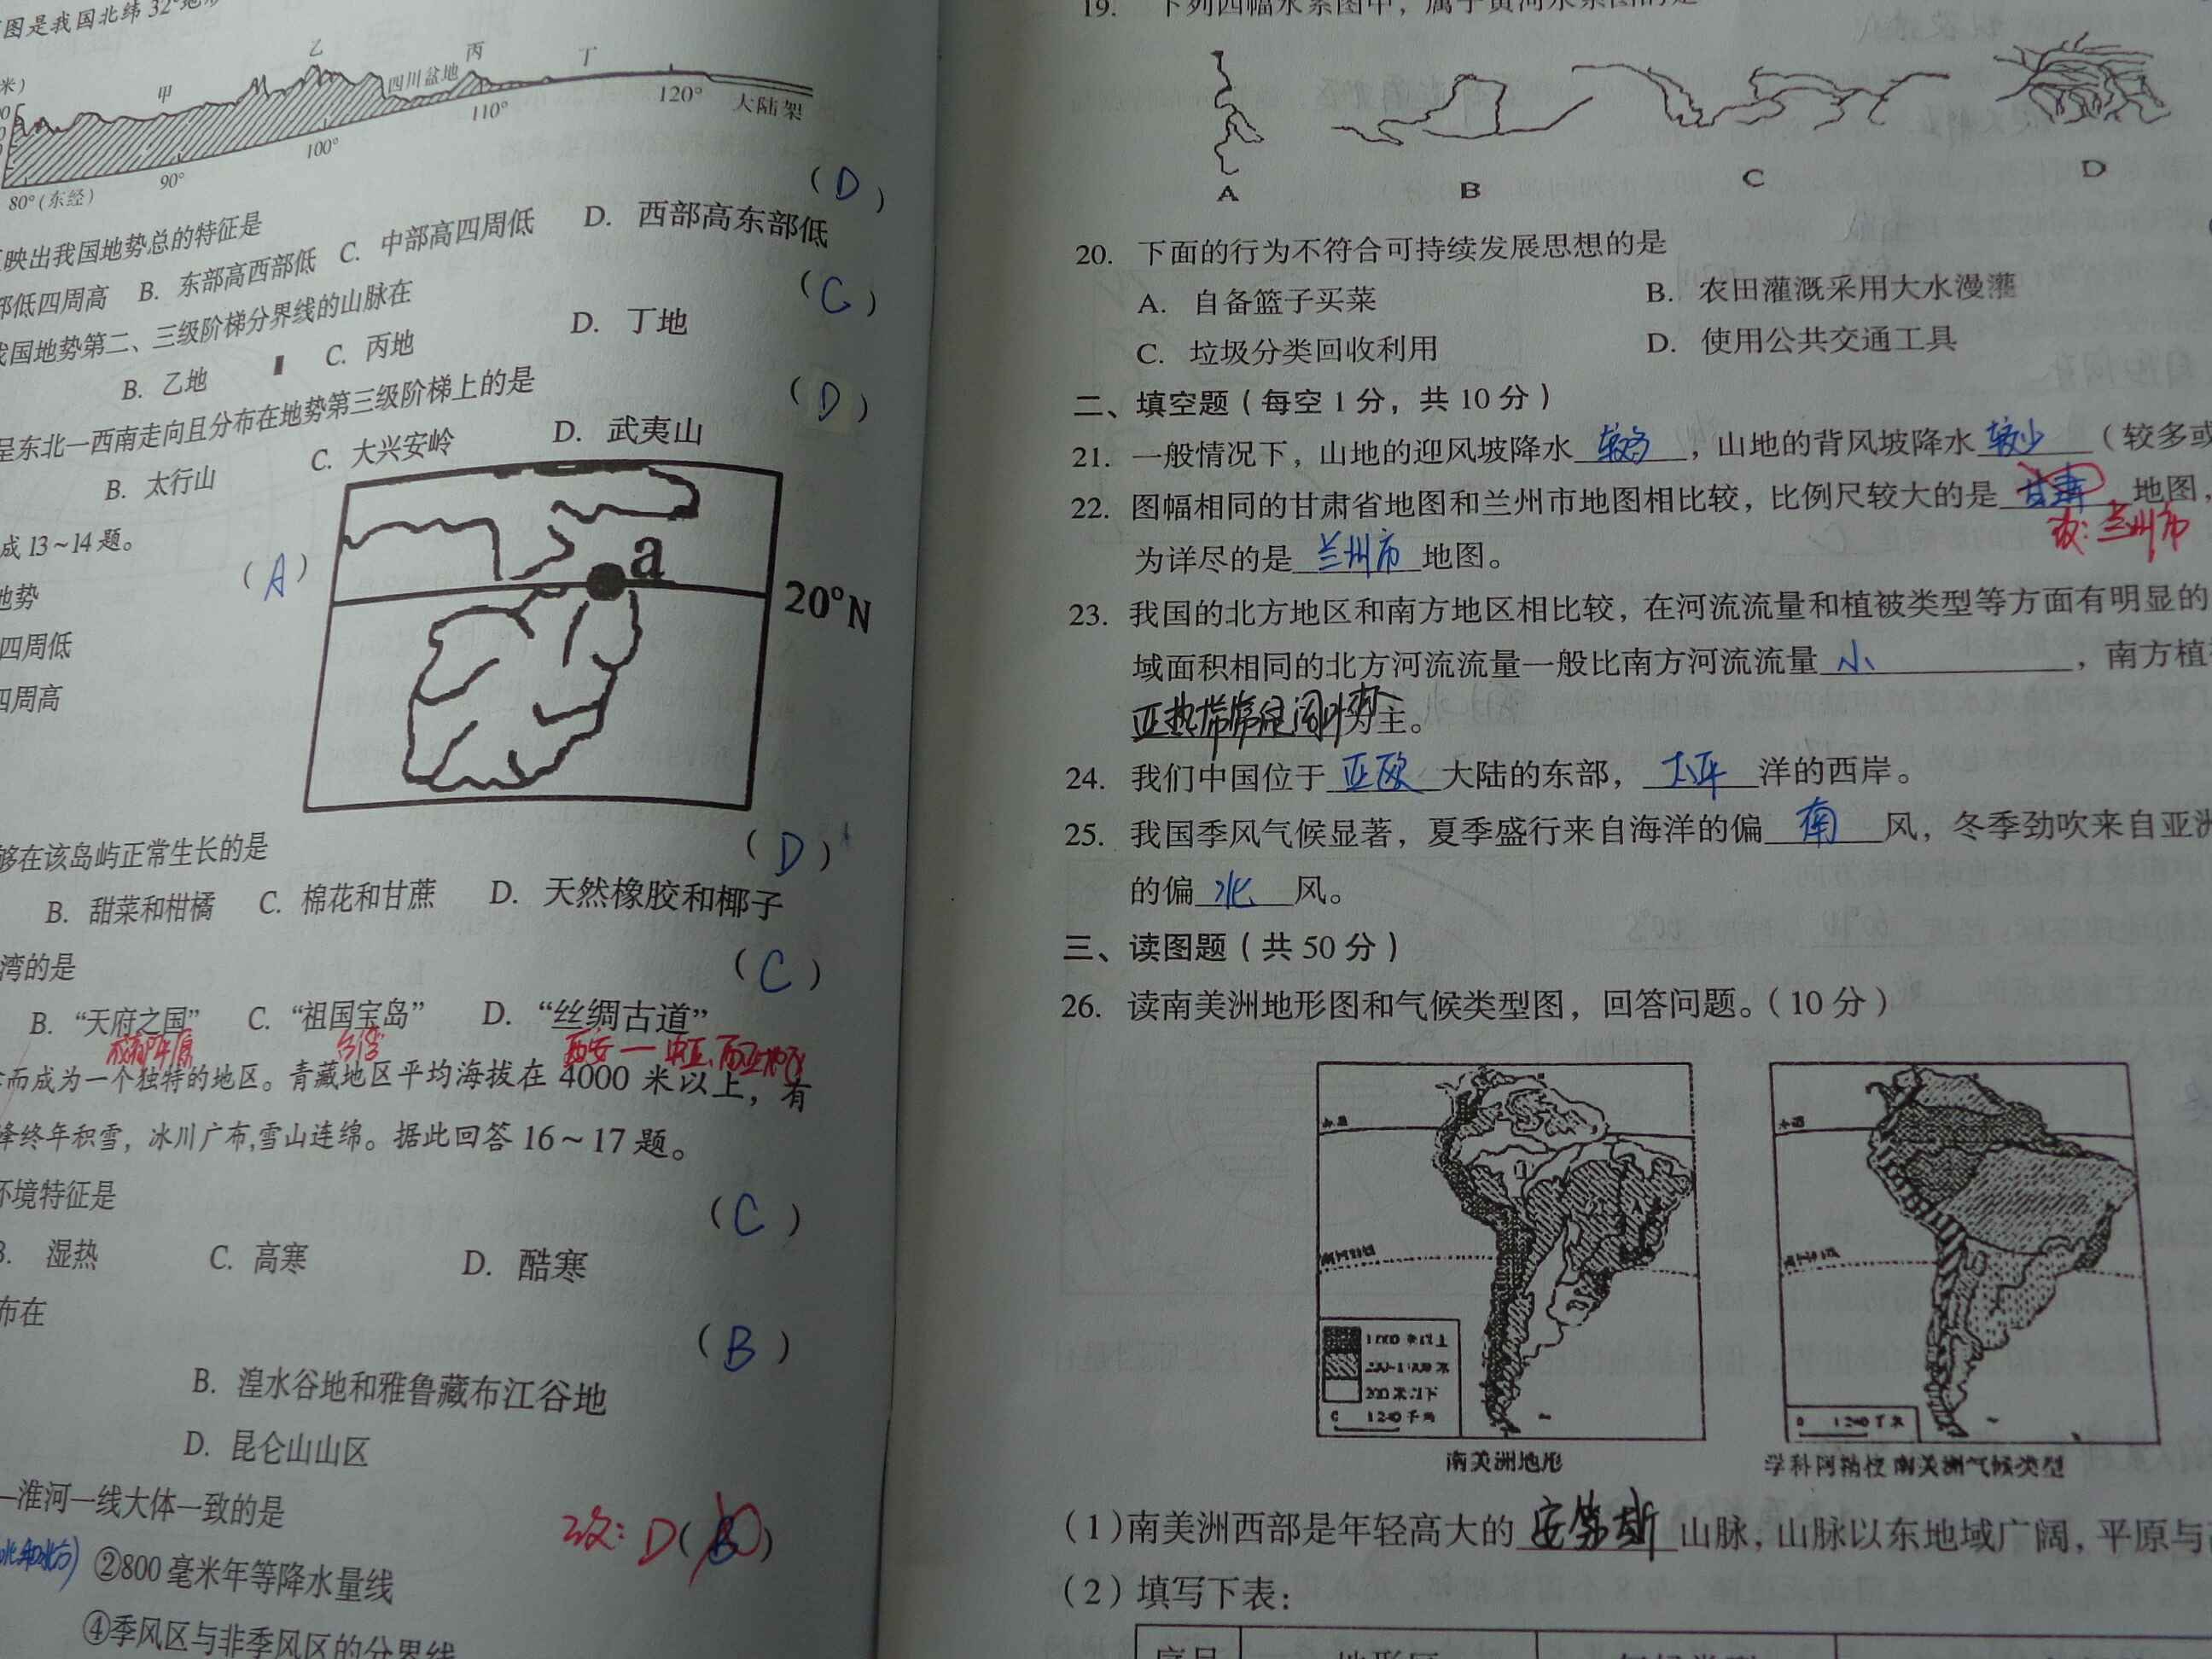 图是我国北纬32°地形
米)
甲
乙
四川盆地
丙
丁
80°(东经)
90°
100°
110°
120°
大陆架
映出我国地势总的特征是
(D)
部低四周高 B. 东部高西部低 C. 中部高四周低 D. 西部高东部低
我国地势第二、三级阶梯分界线的山脉在
(C)
B. 乙地 C. 丙地 D. 丁地
呈东北一西南走向且分布在地势第三级阶梯上的是
(D)
B. 太行山 C. 大兴安岭 D. 武夷山
成13~14题。
(A)
a
20°N
地势
四周低
四周高
够在该岛屿正常生长的是
(D)
B. 甜菜和柑橘 C. 棉花和甘蔗 D. 天然橡胶和椰子
湾的是
(C)
B. “天府之国” C. “祖国宝岛” D. “丝绸古道”
成都平原 台湾 西安一中亚、西亚地区
而成为一个独特的地区。青藏地区平均海拔在4000米以上，有
峰终年积雪，冰川广布,雪山连绵。据此回答16~17题。
环境特征是
(C)
B. 湿热 C. 高寒 D. 酷寒
布在
(B)
B. 湟水谷地和雅鲁藏布江谷地
D. 昆仑山山区
—淮河一线大体一致的是
改: D(B)
②800毫米年等降水量线
④季风区与非季风区的分界线
19. 下列四幅水系图中，属于黄河水系图的是
A
B
C
D
20. 下面的行为不符合可持续发展思想的是
A. 自备篮子买菜 B. 农田灌溉采用大水漫灌
C. 垃圾分类回收利用 D. 使用公共交通工具
二、填空题(每空1分，共10分)
21. 一般情况下，山地的迎风坡降水 较多 ，山地的背风坡降水 较少 (较多或
22. 图幅相同的甘肃省地图和兰州市地图相比较，比例尺较大的是 甘肃 地图，
改: 兰州市
为详尽的是 兰州市 地图。
23. 我国的北方地区和南方地区相比较，在河流流量和植被类型等方面有明显的
域面积相同的北方河流流量一般比南方河流流量 小 ，南方植
亚热带常绿阔叶林为主。
24. 我们中国位于 亚欧 大陆的东部， 太平 洋的西岸。
25. 我国季风气候显著，夏季盛行来自海洋的偏 南 风，冬季劲吹来自亚洲
的偏 北 风。
三、读图题(共50分)
26. 读南美洲地形图和气候类型图，回答问题。(10分)
1000米以上
200-1000米
200米以下
0 1240千米
南美洲地形
0 1240千米
学科网精校 南美洲气候类型
(1)南美洲西部是年轻高大的 安第斯 山脉，山脉以东地域广阔，平原与高
(2)填写下表:
序号 地形区 气候类型